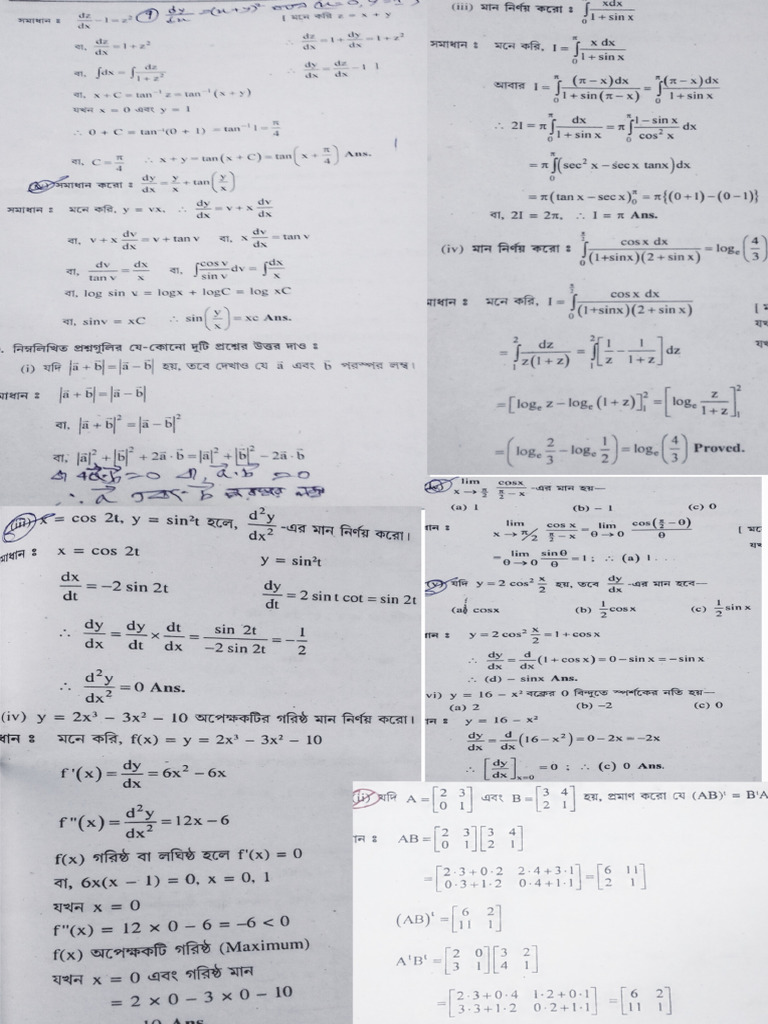 সমাধান ঃ dz/dx − 1 = z²
বা, dz/dx = 1 + z²
বা, ∫dx = ∫dz/(1 + z²)
বা, x + C = tan⁻¹ z = tan⁻¹ (x + y)
যখন x = 0 এবং y = 1
∴ 0 + C = tan⁻¹(0 + 1) = tan⁻¹ 1 = π/4
বা, C = π/4 ∴ x + y = tan(x + C) = tan(x + π/4) Ans.
[ মনে করি z = x + y
∴ dz/dx = 1 + dy/dx = 1 + z²
∴ dy/dx = dz/dx − 1 ]
সমাধান করো ঃ dy/dx = y/x + tan(y/x)
সমাধান ঃ মনে করি, y = vx, ∴ dy/dx = v + x dv/dx
বা, v + x dv/dx = v + tan v বা, x dv/dx = tan v
বা, dv/tan v = dx/x বা, ∫(cos v/sin v) dv = ∫dx/x
বা, log sin v = logx + logC = log xC
বা, sinv = xC ∴ sin(y/x) = xc Ans.
. নিম্নলিখিত প্রশ্নগুলির যে-কোনো দুটি প্রশ্নের উত্তর দাও ঃ
(i) যদি |a⃗ + b⃗| = |a⃗ − b⃗| হয়, তবে দেখাও যে a⃗ এবং b⃗ পরস্পর লম্ব।
মাধান ঃ |a⃗ + b⃗| = |a⃗ − b⃗|
বা, |a⃗ + b⃗|² = |a⃗ − b⃗|²
বা, |a⃗|² + |b⃗|² + 2a⃗ · b⃗ = |a⃗|² + |b⃗|² − 2a⃗ · b⃗
বা 4a⃗·b⃗ = 0 বা, a⃗·b⃗ = 0
∴ a⃗ এবং b⃗ পরস্পর লম্ব
(iii) মান নির্ণয় করো ঃ ∫₀^π xdx/(1 + sin x)
সমাধান ঃ মনে করি, I = ∫₀^π x dx/(1 + sin x)
আবার I = ∫₀^π (π − x)dx/(1 + sin(π − x)) = ∫₀^π (π − x)dx/(1 + sin x)
∴ 2I = π∫₀^π dx/(1 + sin x) = π∫₀^π (1 − sin x)/cos² x dx
= π∫₀^π (sec² x − sec x tanx)dx
= π(tan x − sec x)₀^π = π{(0 + 1) − (0 − 1)}
বা, 2I = 2π, ∴ I = π Ans.
(iv) মান নির্ণয় করো ঃ ∫₀^(π/2) cosx dx/((1+sinx)(2 + sin x)) = logₑ(4/3)
মাধান ঃ মনে করি, I = ∫₀^(π/2) cos x dx/((1+sinx)(2 + sin x))
= ∫₁² dz/(z(1 + z)) = ∫₁² [1/z − 1/(1 + z)] dz
= [logₑ z − logₑ (1 + z)]₁² = [logₑ z/(1 + z)]₁²
= (logₑ 2/3 − logₑ 1/2) = logₑ(4/3) Proved.
(iii) x = cos 2t, y = sin²t হলে, d²y/dx² -এর মান নির্ণয় করো।
মাধান ঃ x = cos 2t y = sin²t
dx/dt = −2 sin 2t dy/dt = 2 sin t cot = sin 2t
∴ dy/dx = dy/dt × dt/dx = sin 2t/(−2 sin 2t) = −1/2
∴ d²y/dx² = 0 Ans.
(iv) y = 2x³ − 3x² − 10 অপেক্ষকটির গরিষ্ঠ মান নির্ণয় করো।
ধান ঃ মনে করি, f(x) = y = 2x³ − 3x² − 10
f'(x) = dy/dx = 6x² − 6x
f"(x) = d²y/dx² = 12x − 6
f(x) গরিষ্ঠ বা লঘিষ্ঠ হলে f'(x) = 0
বা, 6x(x − 1) = 0, x = 0, 1
যখন x = 0
f"(x) = 12 × 0 − 6 = −6 < 0
f(x) অপেক্ষকটি গরিষ্ঠ (Maximum)
যখন x = 0 এবং গরিষ্ঠ মান
= 2 × 0 − 3 × 0 − 10
10 Ans
lim x→π/2 cosx/(π/2 − x) -এর মান হয়—
(a) 1 (b) − 1 (c) 0
ান ঃ lim x→π/2 cos x/(π/2 − x) = lim θ→0 cos(π/2 − θ)/θ
= lim θ→0 sin θ/θ = 1 ; ∴ (a) 1
যদি y = 2 cos² x/2 হয়, তবে dy/dx -এর মান হবে—
(a) cosx (b) 1/2 cosx (c) 1/2 sin x
ান ঃ y = 2 cos² x/2 = 1 + cos x
∴ dy/dx = d/dx (1 + cos x) = 0 − sin x = − sin x
∴ (d) − sinx Ans.
vi) y = 16 − x² বক্রের 0 বিন্দুতে স্পর্শকের নতি হয়—
(a) 2 (b) −2 (c) 0
ান ঃ y = 16 − x²
dy/dx = d/dx (16 − x²) = 0 − 2x = −2x
∴ [dy/dx]ₓ₌₀ = 0 ; ∴ (c) 0 Ans.
(ii) যদি A = [2 3; 0 1] এবং B = [3 4; 2 1] হয়, প্রমাণ করো যে (AB)ᵗ = BᵗA
ান ঃ AB = [2 3; 0 1][3 4; 2 1]
= [2·3 + 0·2 2·4 + 3·1; 0·3 + 1·2 0·4 + 1·1] = [6 11; 2 1]
(AB)ᵗ = [6 2; 11 1]
AᵗBᵗ = [2 0; 3 1][3 2; 4 1]
= [2·3 + 0·4 1·2 + 0·1; 3·3 + 1·2 0·2 + 1·1] = [6 2; 11 1]